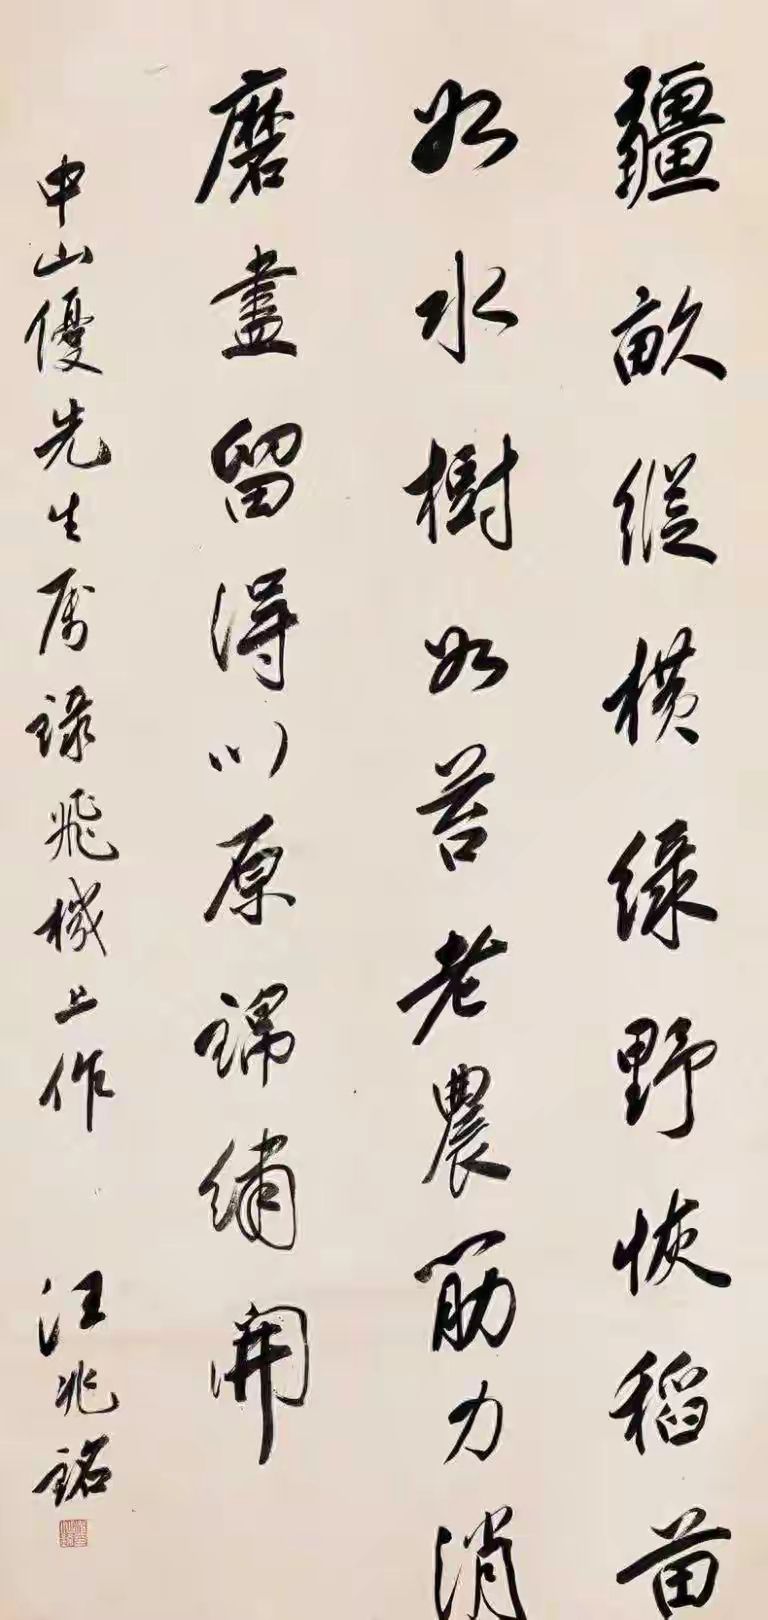 疆畝縱橫綠野恢稻苗
如水樹如苔老農筋力消
磨盡留得川原錦繡開
中山優先生属錄飛機上作
汪兆銘